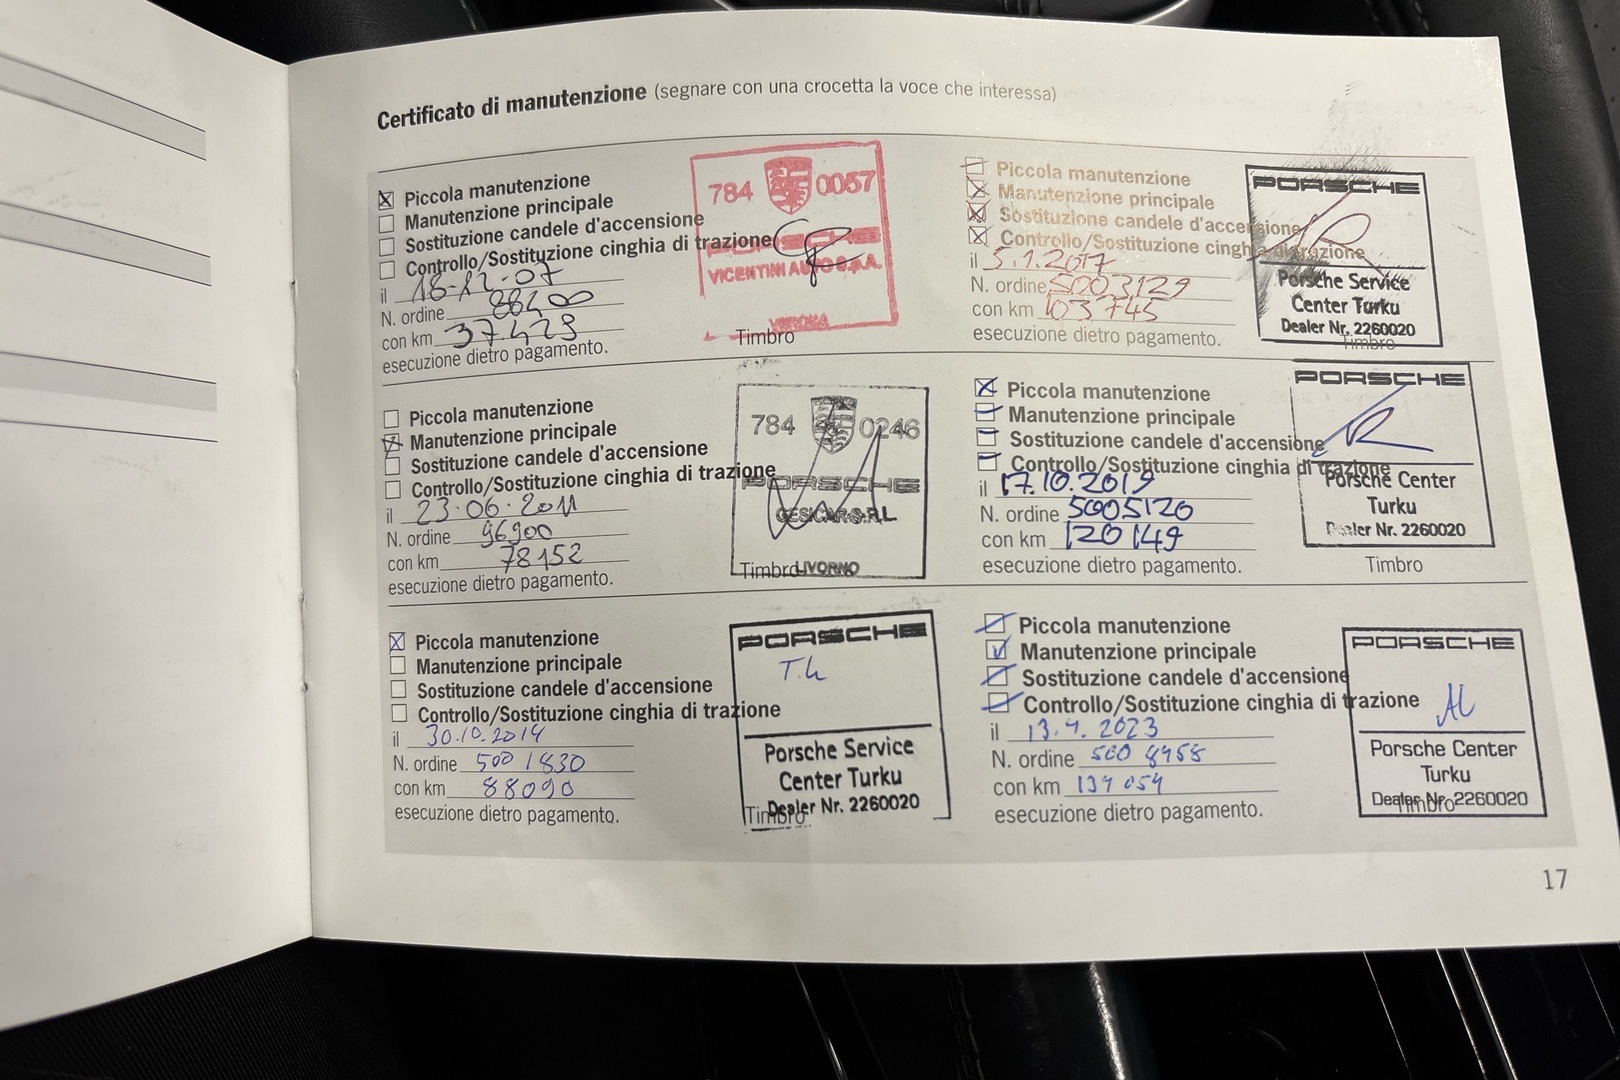 Certificato di manutenzione (segnare con una crocetta la voce che interessa)
Piccola manutenzione
Manutenzione principale
Sostituzione candele d'accensione
Controllo/Sostituzione cinghia di trazione
il 18-12-07
N. ordine 88200
con km 37.423
esecuzione dietro pagamento.
784 0057
PORSCHE
VICENTINI AUTO S.p.A.
VERONA
Timbro
Piccola manutenzione
Manutenzione principale
Sostituzione candele d'accensione
Controllo/Sostituzione cinghia di trazione
il 23.06.2011
N. ordine 96900
con km 78152
esecuzione dietro pagamento.
784 0246
PORSCHE
GESICAR S.R.L.
Timbro LIVORNO
Piccola manutenzione
Manutenzione principale
Sostituzione candele d'accensione
Controllo/Sostituzione cinghia di trazione
il 30.10.2014
N. ordine 500 1830
con km 88090
esecuzione dietro pagamento.
PORSCHE
Porsche Service
Center Turku
Dealer Nr. 2260020
Timbro
Piccola manutenzione
Manutenzione principale
Sostituzione candele d'accensione
Controllo/Sostituzione cinghia di trazione
il 5.1.2017
N. ordine 5003129
con km 103745
esecuzione dietro pagamento.
PORSCHE
Porsche Service
Center Turku
Dealer Nr. 2260020
Timbro
Piccola manutenzione
Manutenzione principale
Sostituzione candele d'accensione
Controllo/Sostituzione cinghia di trazione
il 17.10.2019
N. ordine 5005120
con km 120149
esecuzione dietro pagamento.
PORSCHE
Porsche Center
Turku
Dealer Nr. 2260020
Timbro
Piccola manutenzione
Manutenzione principale
Sostituzione candele d'accensione
Controllo/Sostituzione cinghia di trazione
il 13.4.2023
N. ordine 500 8458
con km 134 054
esecuzione dietro pagamento.
PORSCHE
Porsche Center
Turku
Dealer Nr. 2260020
Timbro
17